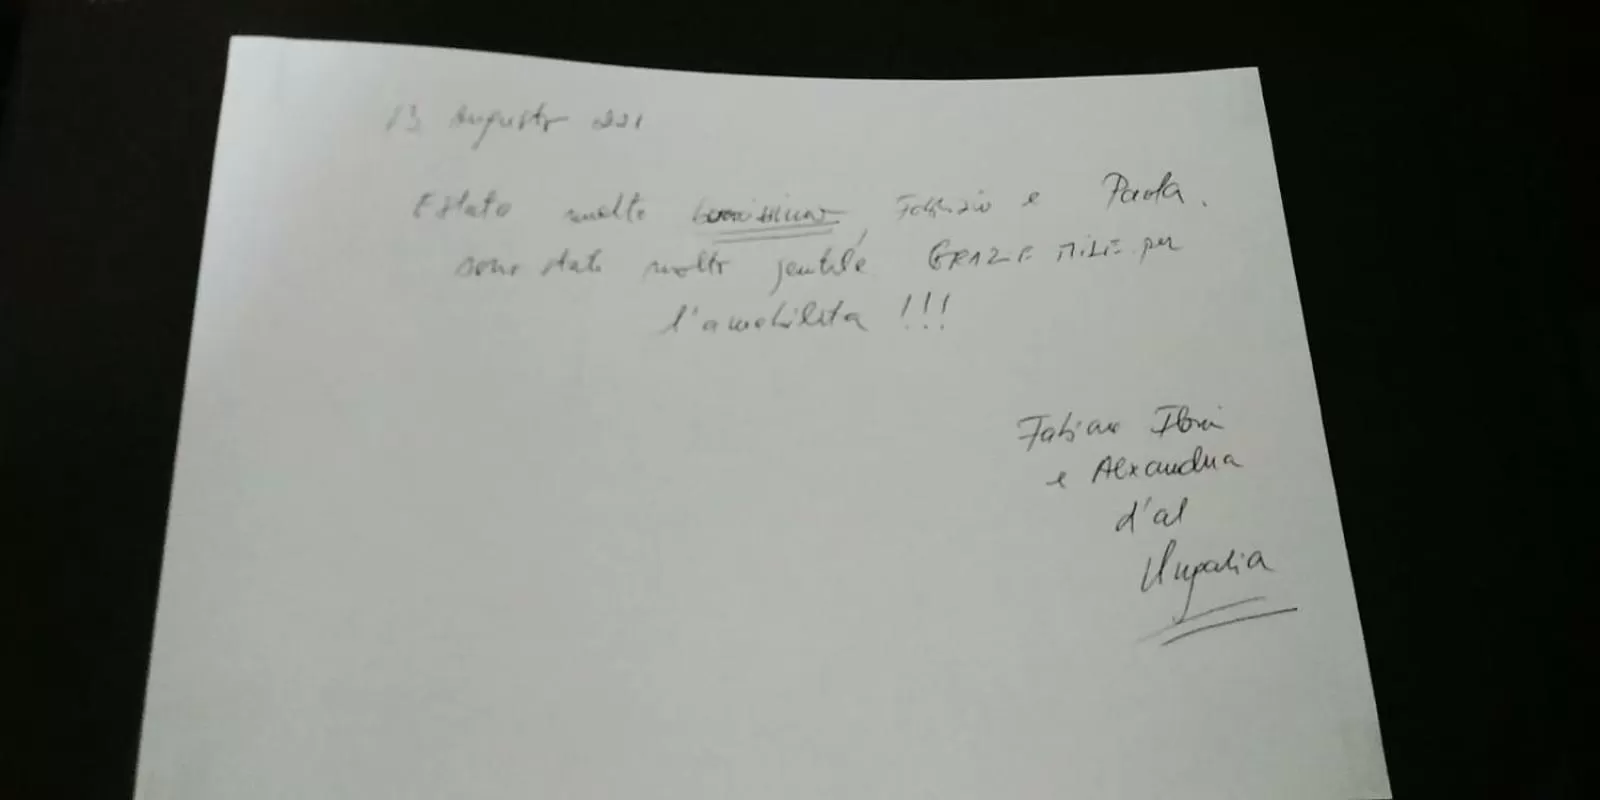 13 Augusto 2021
E stato molto bonissimo, Fabrizio e Paola.
sono stati molto jentile GRAZIE MILE per
l'amobilita !!!
Fabian Iboia
e Alexandra
d'al
Ungaria